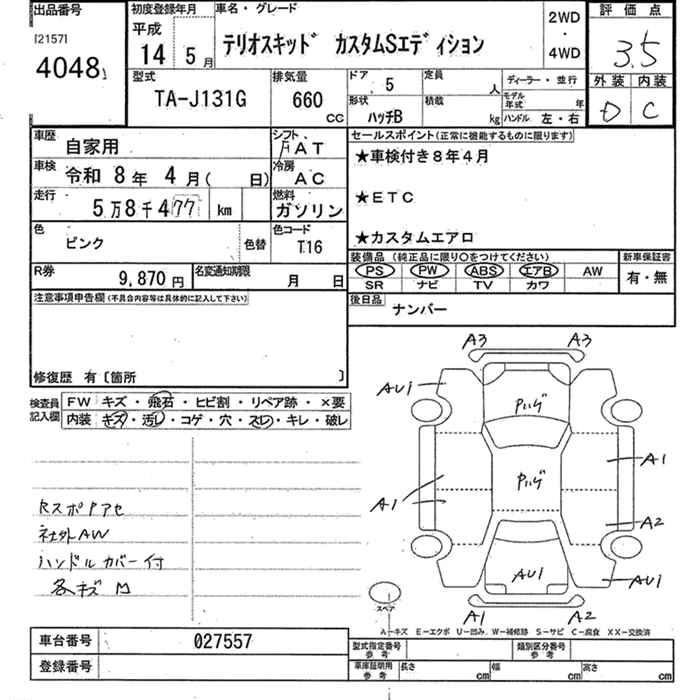 出品番号
[2157]
4048
初度登録年月
平成
14 5月
車名・グレード
テリオスキッド カスタムSエディション
2WD
・
4WD
評価点
3.5
外装 内装
D C
型式
TA-J131G
排気量
660
cc
ドア 5
形状
ハッチB
定員 人
積載 kg
ディーラー・並行
モデル年式 年
ハンドル 左・右
車歴
自家用
シフト
FAT
車検
令和 8年 4月( 日)
冷房
AC
走行
5万8千477 km
燃料
ガソリン
色
ピンク
色替
色コード
T16
R券
9,870円
名変通知期限
月 日
セールスポイント(正常に機能するものに限ります)
★車検付き8年4月
★ETC
★カスタムエアロ
装備品(純正品に限り〇をつけてください)
PS PW ABS エアB AW
SR ナビ TV カワ
新車保証書
有・無
後日品
ナンバー
注意事項申告欄(不具合内容等は具体的に記入して下さい)
修復歴 有〔箇所 〕
検査員記入欄
FW キズ・飛石・ヒビ割・リペア跡・×要
内装 キズ・汚レ・コゲ・穴・スレ・キレ・破レ
RスポPアセ
社外AW
ハンドルカバー付
各キズ凹
A3 A3
AU1
Pハゲ
A1
Pハゲ
A1
A2
AU1
AU1
A1 A2
スペア
A-キズ E-エクボ U-凹み W-補修跡 S-サビ C-腐食 XX-交換済
車台番号
027557
登録番号
型式指定番号
参考
類別区分番号
参考
車庫証明用
参考
長さ cm 幅 cm 高さ cm